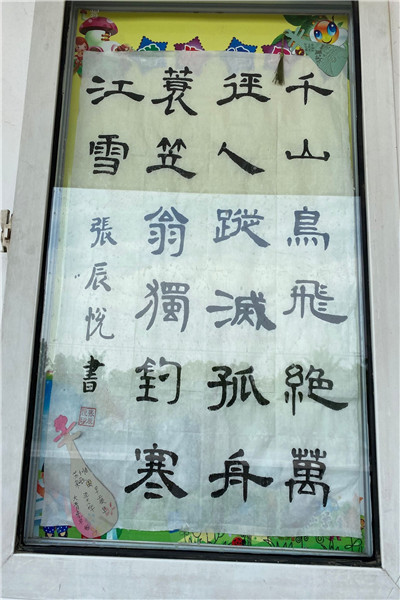 千山鳥飛絕萬
徑人蹤滅孤舟
蓑笠翁獨釣寒
江雪
張辰悦書